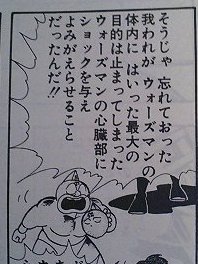 そうじゃ 忘れておった
我われが ウォーズマンの
体内に はいった最大の
目的は止まってしまった
ウォーズマンの心臓部に
ショックを与え
よみがえらせること
だったんだ!!